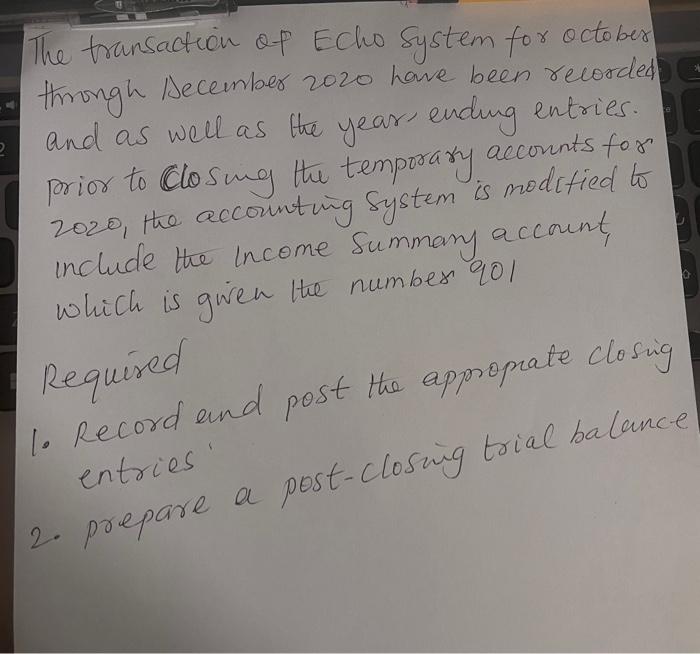 The transaction of Echo System for october
through December 2020 have been recorded
and as well as the year, ending entries.
prior to Closing the temporary accounts for
2020, the accounting System is modified to
include the Income Summary account,
which is given the number 901
Required
1. Record and post the appropriate closing
entries
2. prepare a post-closing trial balance